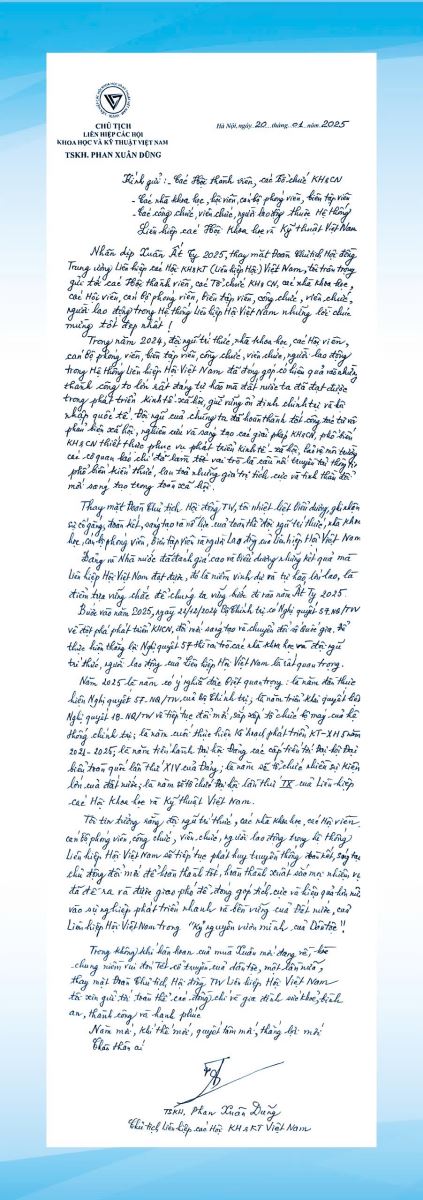 CHỦ TỊCH
LIÊN HIỆP CÁC HỘI
KHOA HỌC VÀ KỸ THUẬT VIỆT NAM
TSKH. PHAN XUÂN DŨNG
Hà Nội, ngày 20 tháng 01 năm 2025
Kính gửi: - Các Hội thành viên, các Tổ chức KH&CN
- Các nhà khoa học, hội viên, cán bộ phóng viên, biên tập viên
- Các công chức, viên chức, người lao động thuộc Hệ thống
Liên hiệp các Hội Khoa học và Kỹ thuật Việt Nam
Nhân dịp Xuân Ất Tỵ 2025, thay mặt Đoàn Chủ tịch Hội đồng
Trung ương Liên hiệp các Hội KH&KT (Liên hiệp Hội) Việt Nam, tôi trân trọng
gửi tới các Hội thành viên, các Tổ chức KH&CN, các nhà khoa học,
các Hội viên, cán bộ phóng viên, biên tập viên, công chức, viên chức,
người lao động trong Hệ thống Liên hiệp Hội Việt Nam những lời chúc
mừng tốt đẹp nhất!
Trong năm 2024, đội ngũ trí thức, nhà khoa học, các Hội viên,
cán bộ phóng viên, biên tập viên, công chức, viên chức, người lao động
trong Hệ thống Liên hiệp Hội Việt Nam đã đóng góp có hiệu quả vào những
thành công to lớn rất đáng tự hào mà đất nước ta đã đạt được
trong phát triển kinh tế xã hội, giữ vững ổn định chính trị và hội
nhập quốc tế. Đội ngũ của chúng ta đã hoàn thành tốt công tác tư vấn
phản biện xã hội, nghiên cứu và sáng tạo các giải pháp KH&CN, phổ biến
KH&CN thiết thực phục vụ phát triển kinh tế - xã hội,
các cơ quan báo chí đã làm tốt vai trò là cầu nối truyền tải thông tin
phổ biến kiến thức, lan toả những giá trị tích cực và tinh thần đổi
mới sáng tạo trong toàn xã hội.
Thay mặt Đoàn Chủ tịch Hội đồng TW, tôi nhiệt liệt biểu dương, ghi nhận
sự cố gắng, đoàn kết, sáng tạo và nỗ lực của toàn thể đội ngũ trí thức, nhà khoa
học, cán bộ phóng viên, biên tập viên và người lao động của Liên hiệp Hội Việt Nam
Đảng và Nhà nước đã đánh giá cao và biểu dương những kết quả mà
Liên hiệp Hội Việt Nam đạt được, đó là niềm vinh dự và tự hào lớn lao, là
điểm tựa vững chắc để chúng ta vững bước đi vào năm Ất Tỵ 2025.
Bước vào năm 2025, ngày 22/12/2024 Bộ Chính trị có Nghị quyết 57-NQ/TW
về đột phá phát triển KHCN, đổi mới sáng tạo và chuyển đổi số Quốc gia. Để
thực hiện thắng lợi Nghị quyết 57 thì vai trò các nhà khoa học và đội ngũ
trí thức, người lao động của Liên hiệp Hội Việt Nam là rất quan trọng.
Năm 2025 là năm có ý nghĩa đặc biệt quan trọng: là năm đầu thực
hiện Nghị quyết 57-NQ/TW của Bộ Chính trị; là năm triển khai quyết liệt
Nghị quyết 18-NQ/TW về tiếp tục đổi mới, sắp xếp tổ chức bộ máy của hệ
thống chính trị; là năm cuối thực hiện Kế hoạch phát triển KT-XH 5 năm
2021-2025; là năm tiến hành Đại hội Đảng các cấp tiến tới Đại hội Đại
biểu toàn quốc lần thứ XIV của Đảng; là năm sẽ tổ chức nhiều sự kiện
lớn của đất nước; là năm sẽ tổ chức Đại hội lần thứ IX của Liên hiệp
các Hội Khoa học và Kỹ thuật Việt Nam.
Tôi tin tưởng rằng đội ngũ trí thức, các nhà khoa học, các Hội viên
cán bộ phóng viên, công chức, viên chức, người lao động trong hệ thống
Liên hiệp Hội Việt Nam sẽ tiếp tục phát huy truyền thống đoàn kết, sáng tạo
chủ động đổi mới để hoàn thành tốt, hoàn thành xuất sắc mọi nhiệm vụ
đã đề ra và được giao phó để đóng góp tích cực và hiệu quả hơn nữa
vào sự nghiệp phát triển nhanh và bền vững của Đất nước, của
Liên hiệp Hội Việt Nam trong "Kỷ nguyên vươn mình của Dân tộc"!
Trong không khí hân hoan của mùa Xuân mới đang về,
chung niềm vui đón Tết cổ truyền của dân tộc, một lần nữa,
thay mặt Đoàn Chủ tịch, Hội đồng TW Liên hiệp Hội Việt Nam
tôi xin gửi tới toàn thể các đồng chí và gia đình sức khoẻ, bình
an, thành công và hạnh phúc
Năm mới, khí thế mới, quyết tâm mới, thắng lợi mới
Thân thân ái
TSKH. Phan Xuân Dũng
Chủ tịch Liên hiệp các Hội KH&KT Việt Nam